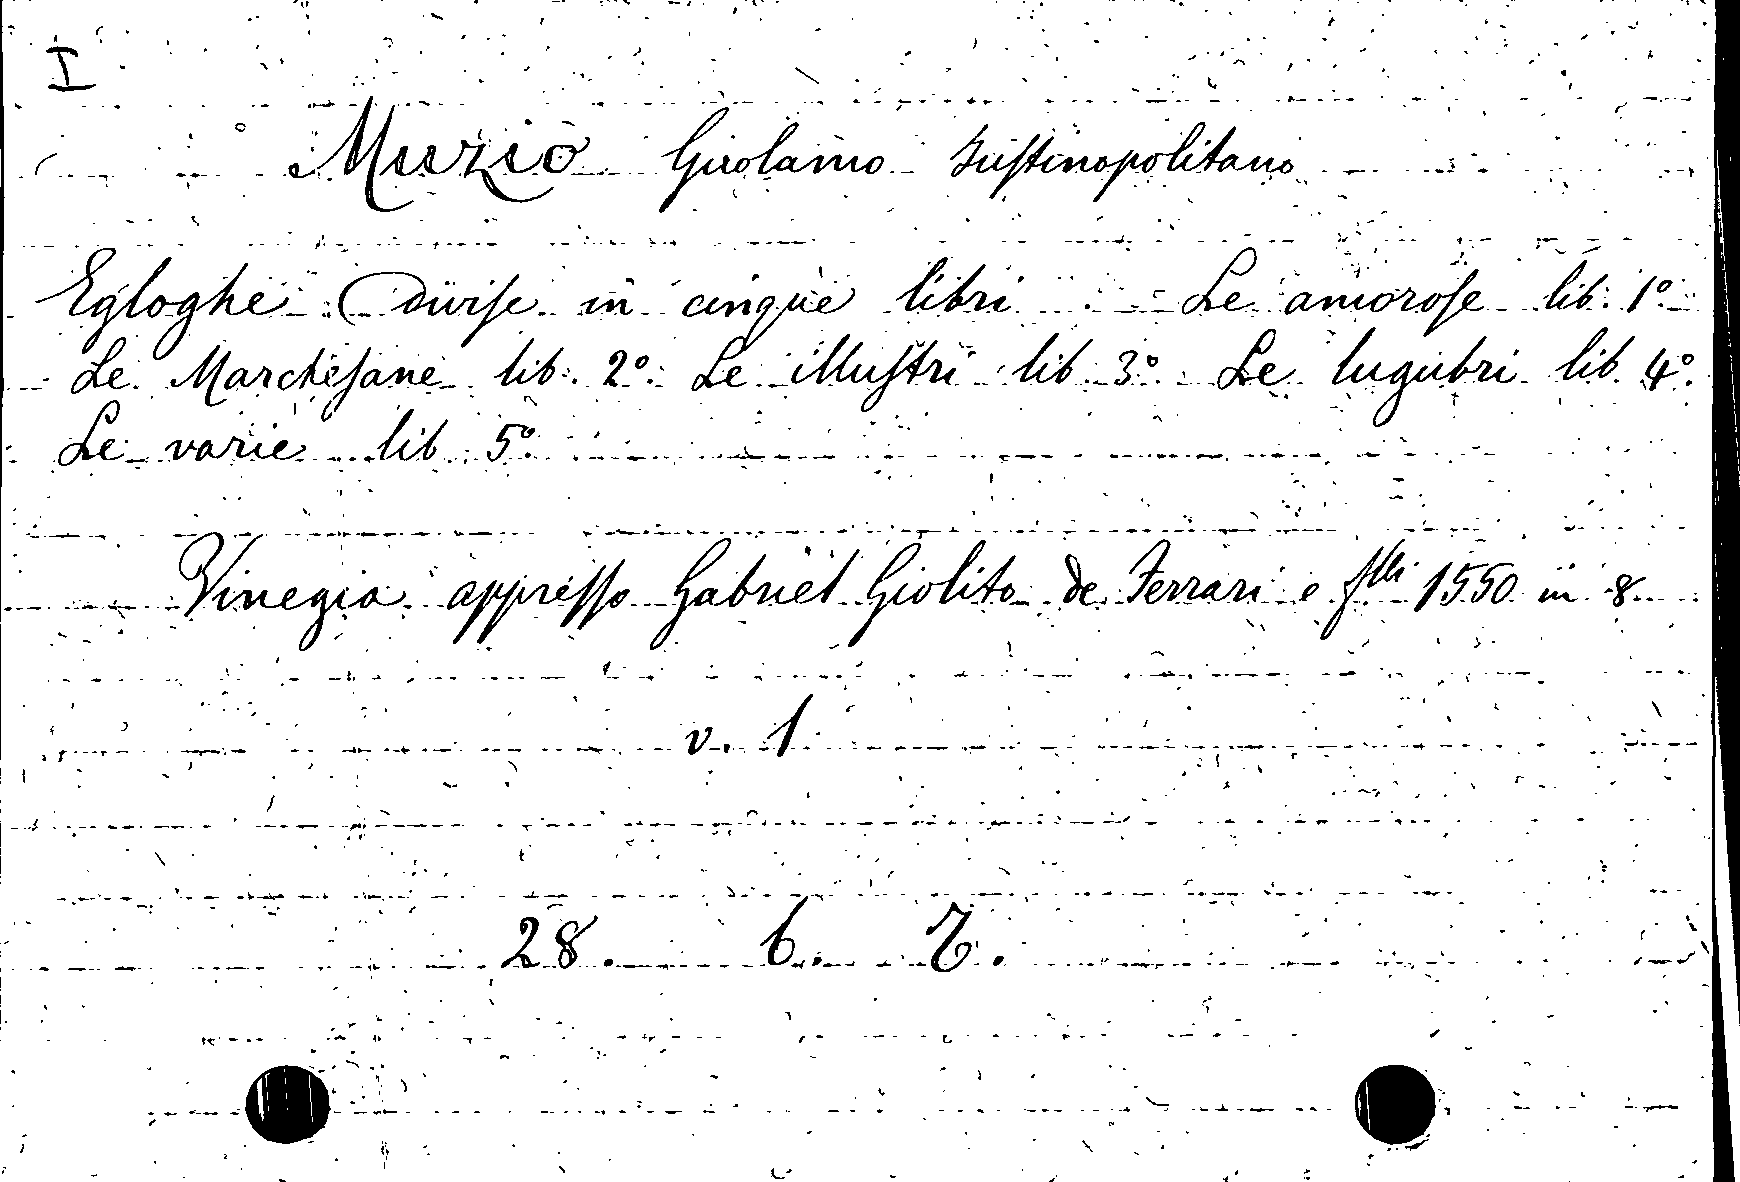 I
Muzio Girolamo Iustinopolitano
Egloghe Divise in cinque libri Le amorose lib. 1º
Le Marchesane lib. 2º. Le illustri lib 3º. Le lugubri lib. 4º.
Le varie lib 5º
Vinegia appresso Gabriel Giolito de Ferrari e flli 1550 in 8.
v. 1
28. 6.